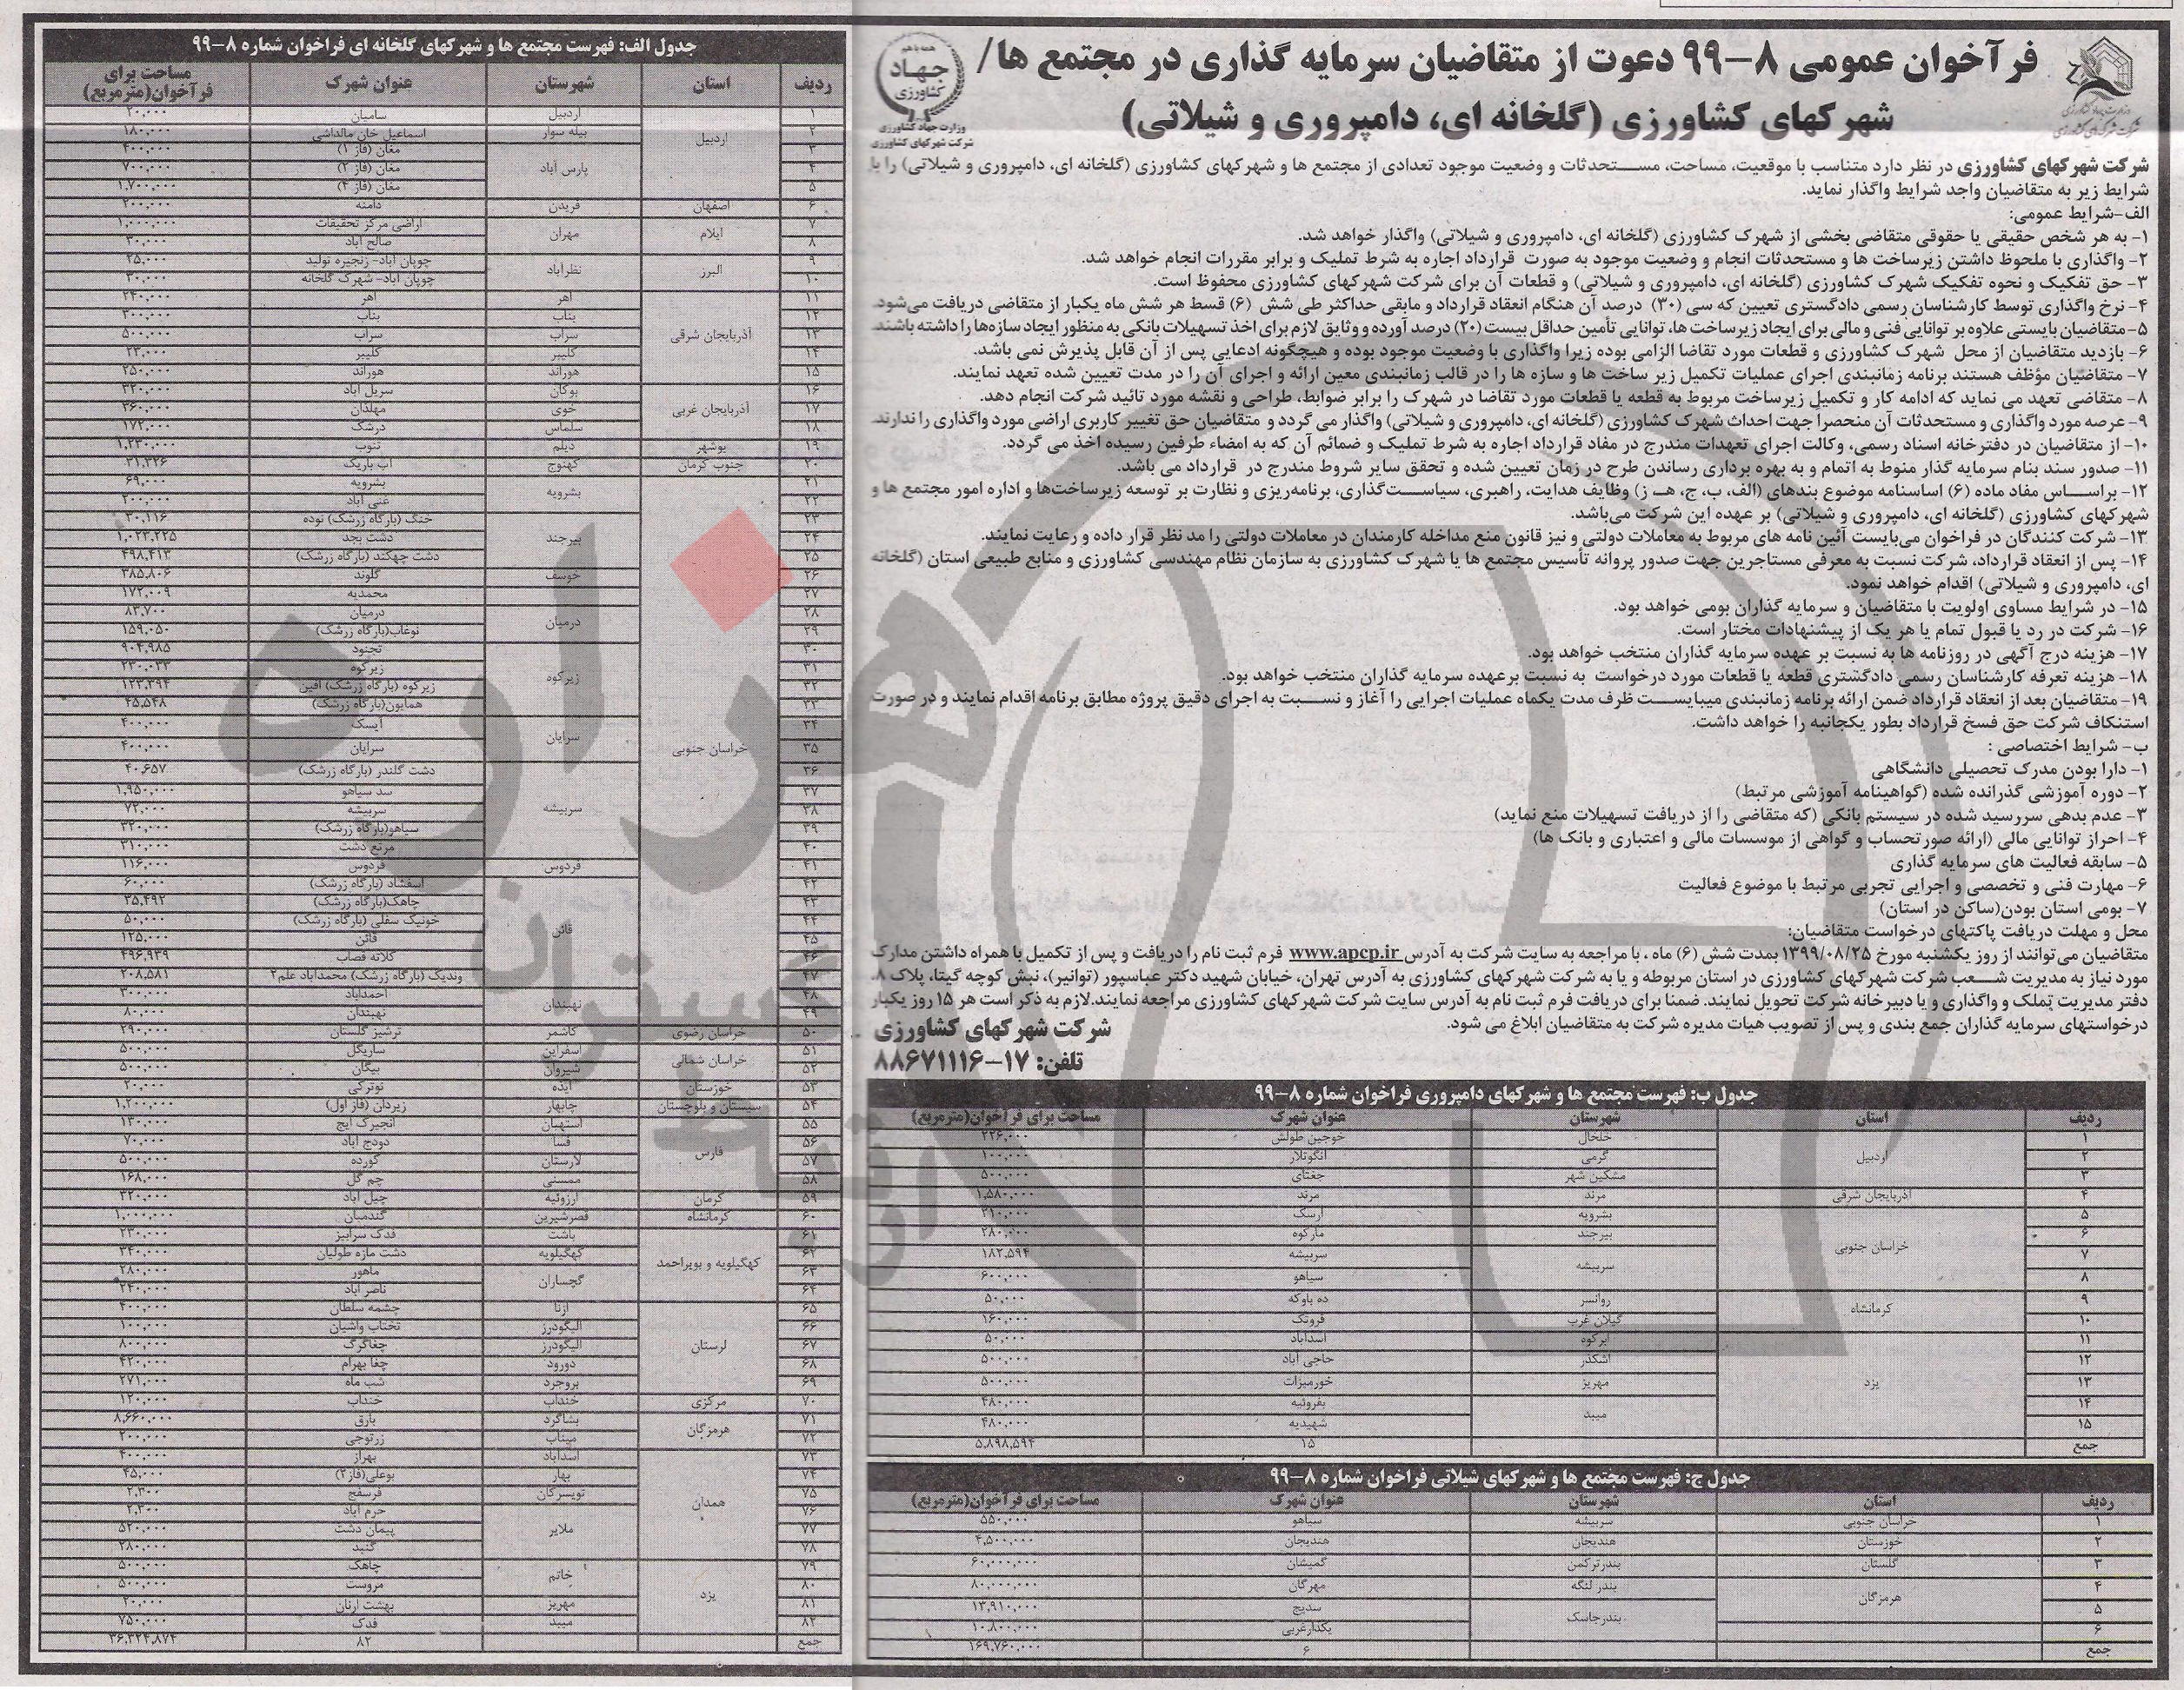 فرآخوان عمومی ۸-۹۹ دعوت از متقاضیان سرمایه گذاری در مجتمع ها/
شهرکهای کشاورزی (گلخانه ای، دامپروری و شیلاتی)
جهاد کشاورزی
وزارت جهاد کشاورزی
شرکت شهرکهای کشاورزی
شرکت شهرکهای کشاورزی در نظر دارد متناسب با موقعیت، مساحت، مستحدثات و وضعیت موجود تعدادی از مجتمع ها و شهرکهای کشاورزی (گلخانه ای، دامپروری و شیلاتی) را با
شرایط زیر به متقاضیان واجد شرایط واگذار نماید.
الف-شرایط عمومی:
۱- به هر شخص حقیقی یا حقوقی متقاضی بخشی از شهرک کشاورزی (گلخانه ای، دامپروری و شیلاتی) واگذار خواهد شد.
۲- واگذاری با ملحوظ داشتن زیرساخت ها و مستحدثات انجام و وضعیت موجود به صورت قرارداد اجاره به شرط تملیک و برابر مقررات انجام خواهد شد.
۳- حق تفکیک و نحوه تفکیک شهرک کشاورزی (گلخانه ای، دامپروری و شیلاتی) و قطعات آن برای شرکت شهرکهای کشاورزی محفوظ است.
۴- نرخ واگذاری توسط کارشناسان رسمی دادگستری تعیین که سی (۳۰) درصد آن هنگام انعقاد قرارداد و مابقی حداکثر طی شش (۶) قسط هر شش ماه یکبار از متقاضی دریافت می‌شود.
۵- متقاضیان بایستی علاوه بر توانایی فنی و مالی برای ایجاد زیرساخت ها، توانایی تأمین حداقل بیست (۲۰) درصد آورده و وثایق لازم برای اخذ تسهیلات بانکی به منظور ایجاد سازه‌ها را داشته باشند.
۶- بازدید متقاضیان از محل شهرک کشاورزی و قطعات مورد تقاضا الزامی بوده زیرا واگذاری با وضعیت موجود بوده و هیچگونه ادعایی پس از آن قابل پذیرش نمی باشد.
۷- متقاضیان مؤظف هستند برنامه زمانبندی اجرای عملیات تکمیل زیر ساخت ها و سازه ها را در قالب زمانبندی معین ارائه و اجرای آن را در مدت تعیین شده تعهد نمایند.
۸- متقاضی تعهد می نماید که ادامه کار و تکمیل زیرساخت مربوط به قطعه یا قطعات مورد تقاضا در شهرک را برابر ضوابط، طراحی و نقشه مورد تائید شرکت انجام دهد.
۹- عرصه مورد واگذاری و مستحدثات آن منحصراً جهت احداث شهرک کشاورزی (گلخانه ای، دامپروری و شیلاتی) واگذار می گردد و متقاضیان حق تغییر کاربری اراضی مورد واگذاری را ندارند.
۱۰- از متقاضیان در دفترخانه اسناد رسمی، وکالت اجرای تعهدات مندرج در مفاد قرارداد اجاره به شرط تملیک و ضمائم آن که به امضاء طرفین رسیده اخذ می گردد.
۱۱- صدور سند بنام سرمایه گذار منوط به اتمام و به بهره برداری رساندن طرح در زمان تعیین شده و تحقق سایر شروط مندرج در قرارداد می باشد.
۱۲- براساس مفاد ماده (۶) اساسنامه موضوع بندهای (الف، ب، ج، هـ، ز) وظایف هدایت، راهبری، سیاست‌گذاری، برنامه‌ریزی و نظارت بر توسعه زیرساخت‌ها و اداره امور مجتمع ها و
شهرکهای کشاورزی (گلخانه ای، دامپروری و شیلاتی) بر عهده این شرکت می‌باشد.
۱۳- شرکت کنندگان در فراخوان می‌بایست آئین نامه های مربوط به معاملات دولتی و نیز قانون منع مداخله کارمندان در معاملات دولتی را مد نظر قرار داده و رعایت نمایند.
۱۴- پس از انعقاد قرارداد، شرکت نسبت به معرفی مستاجرین جهت صدور پروانه تأسیس مجتمع ها یا شهرک کشاورزی به سازمان نظام مهندسی کشاورزی و منابع طبیعی استان (گلخانه
ای، دامپروری و شیلاتی) اقدام خواهد نمود.
۱۵- در شرایط مساوی اولویت با متقاضیان و سرمایه گذاران بومی خواهد بود.
۱۶- شرکت در رد یا قبول تمام یا هر یک از پیشنهادات مختار است.
۱۷- هزینه درج آگهی در روزنامه ها به نسبت بر عهده سرمایه گذاران منتخب خواهد بود.
۱۸- هزینه تعرفه کارشناسان رسمی دادگشتری قطعه یا قطعات مورد درخواست به نسبت برعهده سرمایه گذاران منتخب خواهد بود.
۱۹- متقاضیان بعد از انعقاد قرارداد ضمن ارائه برنامه زمانبندی میبایست ظرف مدت یکماه عملیات اجرایی را آغاز و نسبت به اجرای دقیق پروژه مطابق برنامه اقدام نمایند و در صورت
استنکاف شرکت حق فسخ قرارداد بطور یکجانبه را خواهد داشت.
ب- شرایط اختصاصی :
۱- دارا بودن مدرک تحصیلی دانشگاهی
۲- دوره آموزشی گذرانده شده (گواهینامه آموزشی مرتبط)
۳- عدم بدهی سررسید شده در سیستم بانکی (که متقاضی را از دریافت تسهیلات منع نماید)
۴- احراز توانایی مالی (ارائه صورتحساب و گواهی از موسسات مالی و اعتباری و بانک ها)
۵- سابقه فعالیت های سرمایه گذاری
۶- مهارت فنی و تخصصی و اجرایی تجربی مرتبط با موضوع فعالیت
۷- بومی استان بودن(ساکن در استان)
محل و مهلت دریافت پاکتهای درخواست متقاضیان:
متقاضیان می‌توانند از روز یکشنبه مورخ ۱۳۹۹/۰۸/۲۵ بمدت شش (۶) ماه ، با مراجعه به سایت شرکت به آدرس www.apcp.ir فرم ثبت نام را دریافت و پس از تکمیل با همراه داشتن مدارک
مورد نیاز به مدیریت شعب شرکت شهرکهای کشاورزی در استان مربوطه و یا به شرکت شهرکهای کشاورزی به آدرس تهران، خیابان شهید دکتر عباسپور (توانیر)، نبش کوچه گیتا، پلاک ۸،
دفتر مدیریت تملک و واگذاری و یا دبیرخانه شرکت تحویل نمایند. ضمنا برای دریافت فرم ثبت نام به آدرس سایت شرکت شهرکهای کشاورزی مراجعه نمایند.لازم به ذکر است هر ۱۵ روز یکبار
درخواستهای سرمایه گذاران جمع بندی و پس از تصویب هیات مدیره شرکت به متقاضیان ابلاغ می شود.
شرکت شهرکهای کشاورزی
تلفن: ۱۷-۸۸۶۷۱۱۱۶
جدول ب: فهرست مجتمع ها و شهرکهای دامپروری فراخوان شماره ۸-۹۹
ردیف استان شهرستان عنوان شهرک مساحت برای فرآخوان(مترمربع)
۱ اردبیل خلخال خوجین طولش ۲۲۶,۰۰۰
۲ گرمی انگوتلار ۱۰۰,۰۰۰
۳ مشگین شهر جغتای ۵۰۰,۰۰۰
۴ آذربایجان شرقی مرند مرند ۱,۵۸۰,۰۰۰
۵ خراسان جنوبی بشرویه ارسک ۲۱۰,۰۰۰
۶ بیرجند مارکوه ۲۸۰,۰۰۰
۷ سربیشه سربیشه ۱۸۲,۵۹۴
۸ سیاهو ۶۰۰,۰۰۰
۹ کرمانشاه روانسر ده باوکه ۵۰,۰۰۰
۱۰ گیلان غرب فرونک ۱۶۰,۰۰۰
۱۱ یزد ابرکوه اسدآباد ۵۰,۰۰۰
۱۲ اشکذر حاجی آباد ۵۰۰,۰۰۰
۱۳ مهریز خورمیزات ۵۰۰,۰۰۰
۱۴ میبد بفروئیه ۴۸۰,۰۰۰
۱۵ شهیدیه ۴۸۰,۰۰۰
جمع ۱۵ ۵,۸۹۸,۵۹۴
جدول ج: فهرست مجتمع ها و شهرکهای شیلاتی فراخوان شماره ۸-۹۹
ردیف استان شهرستان عنوان شهرک مساحت برای فرآخوان(مترمربع)
۱ خراسان جنوبی سربیشه سیاهو ۵۵۰,۰۰۰
۲ خوزستان هندیجان هندیجان ۴,۵۰۰,۰۰۰
۳ گلستان بندرترکمن گمیشان ۶۰,۰۰۰,۰۰۰
۴ هرمزگان بندر لنگه مهرگان ۸۰,۰۰۰,۰۰۰
۵ بندرجاسک سدیج ۱۳,۹۱۰,۰۰۰
۶ یکدارغربی ۱۰,۸۰۰,۰۰۰
جمع ۶ ۱۶۹,۷۶۰,۰۰۰
جدول الف: فهرست مجتمع ها و شهرکهای گلخانه ای فراخوان شماره ۸-۹۹
ردیف استان شهرستان عنوان شهرک مساحت برای فرآخوان(مترمربع)
۱ اردبیل اردبیل سامیان ۲۰,۰۰۰
۲ بیله سوار اسماعیل خان مالداشی ۱۸۰,۰۰۰
۳ پارس آباد مغان (فاز ۱) ۴۰۰,۰۰۰
۴ مغان (فاز ۲) ۷۰۰,۰۰۰
۵ مغان (فاز ۴) ۱,۷۰۰,۰۰۰
۶ اصفهان فریدن دامنه ۲۰۰,۰۰۰
۷ ایلام مهران اراضی مرکز تحقیقات ۱,۰۰۰,۰۰۰
۸ صالح آباد ۳۰,۰۰۰
۹ البرز نظرآباد چوپان آباد- زنجیره تولید ۲۵,۰۰۰
۱۰ چوپان آباد- شهرک گلخانه ۳۰,۰۰۰
۱۱ آذربایجان شرقی اهر اهر ۲۴۰,۰۰۰
۱۲ بناب بناب ۳۰۰,۰۰۰
۱۳ سراب سراب ۵۰۰,۰۰۰
۱۴ کلیبر کلیبر ۲۳,۰۰۰
۱۵ هوراند هوراند ۲۵۰,۰۰۰
۱۶ آذربایجان غربی بوکان سریل آباد ۳۲۰,۰۰۰
۱۷ خوی مهلذان ۳۶۰,۰۰۰
۱۸ سلماس درشک ۱۷۲,۰۰۰
۱۹ بوشهر دیلم تنوب ۱,۲۳۰,۰۰۰
۲۰ جنوب کرمان کهنوج آب باریک ۳۱,۳۲۶
۲۱ خراسان جنوبی بشرویه بشرویه ۶۹,۰۰۰
۲۲ غنی آباد ۲۰۰,۰۰۰
۲۳ بیرجند خنگ (بارگاه زرشک) نوده ۳۰,۱۱۶
۲۴ دشت بجد ۱,۰۲۳,۲۲۵
۲۵ دشت چهکند (بارگاه زرشک) ۴۹۸,۴۱۳
۲۶ خوسف گلوند ۳۸۵,۸۰۶
۲۷ محمدیه ۱۷۲,۰۰۹
۲۸ درمیان درمیان ۸۳,۷۰۰
۲۹ نوغاب(بارگاه زرشک) ۱۵۹,۰۵۰
۳۰ زیرکوه تجنود ۹۰۴,۹۸۵
۳۱ زیرکوه ۲۳۰,۰۳۳
۳۲ زیرکوه (بارگاه زرشک) آفین ۱۲۳,۳۹۴
۳۳ همایون(بارگاه زرشک) ۴۵,۵۴۸
۳۴ سرایان آیسک ۴۰۰,۰۰۰
۳۵ سرایان ۴۰۰,۰۰۰
۳۶ سربیشه دشت گلندر (بارگاه زرشک) ۴۰,۶۵۷
۳۷ سد سیاهو ۱,۹۵۰,۰۰۰
۳۸ سربیشه ۷۲,۰۰۰
۳۹ سیاهو(بارگاه زرشک) ۳۲۰,۰۰۰
۴۰ مرتع دشت ۳۱۰,۰۰۰
۴۱ فردوس فردوس ۱۱۶,۰۰۰
۴۲ قائن اسفشاد (بارگاه زرشک) ۶۰,۰۰۰
۴۳ چاهک(بارگاه زرشک) ۳۵,۴۹۲
۴۴ خونیک سفلی (بارگاه زرشک) ۵۰,۰۰۰
۴۵ قائن ۱۲۵,۰۰۰
۴۶ کلاته قصاب ۴۹۶,۹۳۹
۴۷ وندیک (بارگاه زرشک) محمدآباد علم۲ ۲۰۸,۵۸۱
۴۸ نهبندان احمدآباد ۳۰۰,۰۰۰
۴۹ نهبندان ۸۰,۰۰۰
۵۰ خراسان رضوی کاشمر ترشیز گلستان ۲۹۰,۰۰۰
۵۱ خراسان شمالی اسفراین ساریگل ۵۰۰,۰۰۰
۵۲ شیروان بیگان ۵۰۰,۰۰۰
۵۳ خوزستان ایذه نوترکی ۲۰,۰۰۰
۵۴ سیستان و بلوچستان چابهار زیردان (فاز اول) ۱,۲۰۰,۰۰۰
۵۵ فارس استهبان انجیرک ایج ۱۳۰,۰۰۰
۵۶ فسا دودج آباد ۷۰,۰۰۰
۵۷ لارستان کورده ۵۰۰,۰۰۰
۵۸ ممسنی چم گل ۱۶۸,۰۰۰
۵۹ کرمان ارزوئیه چیل آباد ۳۲۰,۰۰۰
۶۰ کرمانشاه قصرشیرین گندمبان ۱,۰۰۰,۰۰۰
۶۱ کهگیلویه و بویراحمد باشت فدک سرآبیز ۲۳۰,۰۰۰
۶۲ کهگیلویه دشت مازه طولیان ۳۴۰,۰۰۰
۶۳ گچساران ماهور ۲۸۰,۰۰۰
۶۴ ناصر آباد ۲۴۰,۰۰۰
۶۵ لرستان ازنا چشمه سلطان ۴۰۰,۰۰۰
۶۶ الیگودرز تختاب واشیان ۱۰۰,۰۰۰
۶۷ الیگودرز چغاگرگ ۸۰۰,۰۰۰
۶۸ دورود چغا بهرام ۴۲۰,۰۰۰
۶۹ بروجرد شب ماه ۲۷۱,۰۰۰
۷۰ مرکزی خنداب خنداب ۱۲۰,۰۰۰
۷۱ هرمزگان بشاگرد بازق ۸,۶۶۰,۰۰۰
۷۲ میناب زرتوجی ۲۰۰,۰۰۰
۷۳ همدان اسدآباد بهراز ۴۰۰,۰۰۰
۷۴ بهار بوعلی(فاز۲) ۴۵,۰۰۰
۷۵ تویسرکان فرسفج ۲,۳۰۰
۷۶ ملایر حرم آباد ۲,۳۰۰
۷۷ پیمان دشت ۵۲۰,۰۰۰
۷۸ گنبد ۲۸۰,۰۰۰
۷۹ یزد خاتم چاهک ۵۰۰,۰۰۰
۸۰ مروست ۵۰۰,۰۰۰
۸۱ مهریز بهشت ارنان ۲۰,۰۰۰
۸۲ میبد فدک ۷۵۰,۰۰۰
جمع ۸۲ ۳۶,۳۲۴,۸۷۴